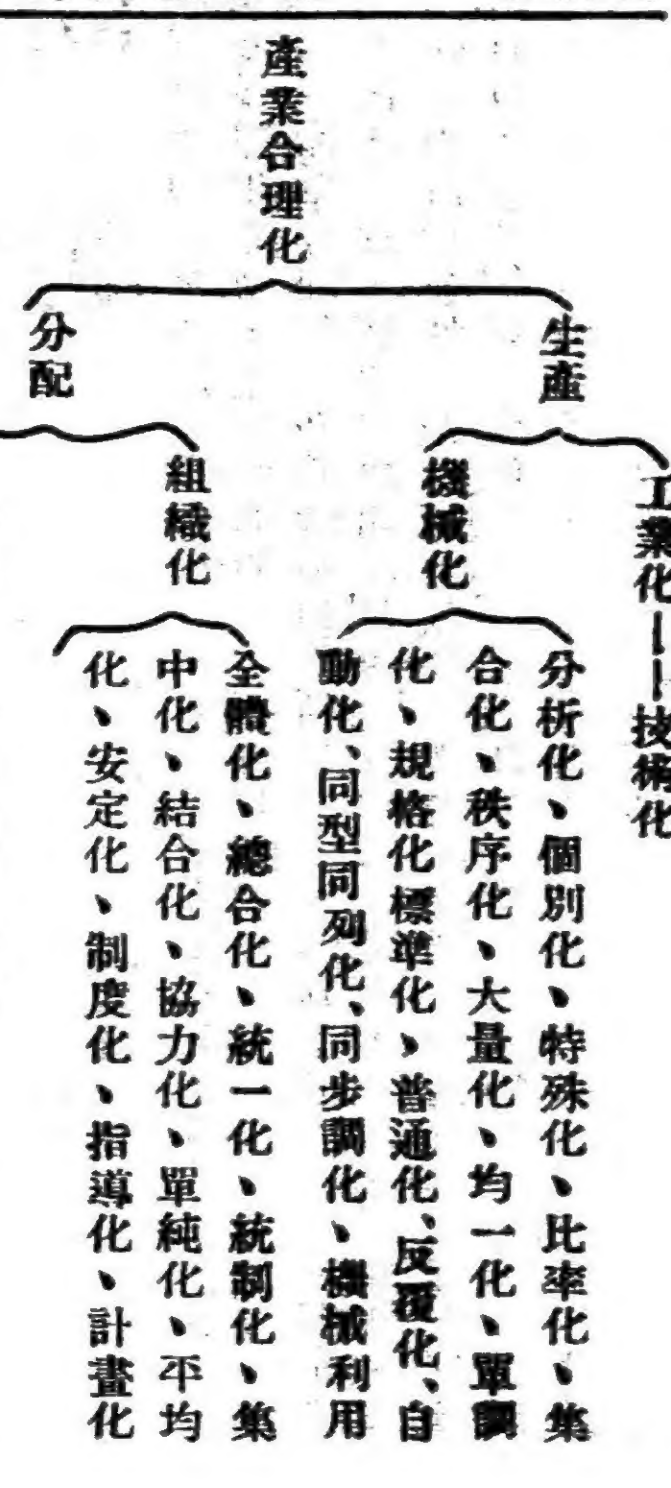 產業合理化
生產
工業化——技術化
機械化
分析化、個別化、特殊化、比率化、集
合化、秩序化、大量化、均一化、單調
化、規格化標準化、普通化、反覆化、自
動化、同型同列化、同步調化、機械利用
分配
組織化
全體化、總合化、統一化、統制化、集
中化、結合化、協力化、單純化、平均
化、安定化、制度化、指導化、計畫化